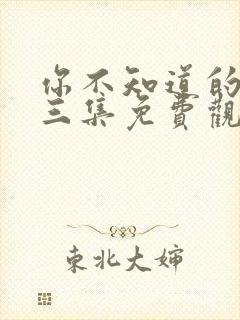 你不知道的
三集免費觀
東北大婶